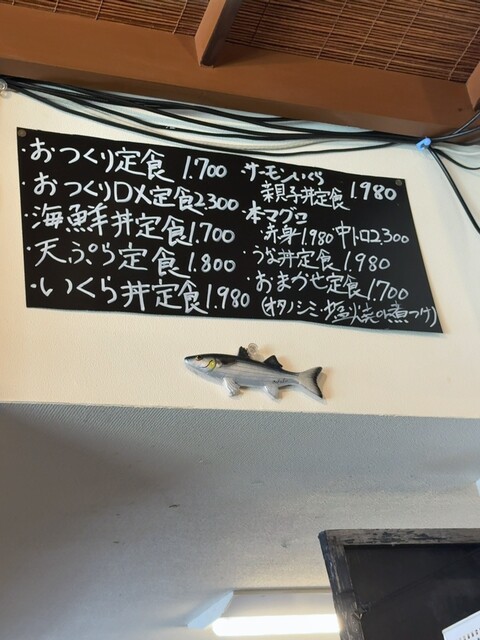 ・おつくり定食 1.700
・おつくりDX定食 2.300
・海鮮丼定食 1.700
・天ぷら定食 1.800
・いくら丼定食 1.980
・サーモンいくら
親子丼定食 1.980
・本マグロ
・赤身 1.980 中トロ 2300
・うな丼定食 1.980
・おまかせ定食 1.700
(オタノシミ・塩焼or煮つけ)